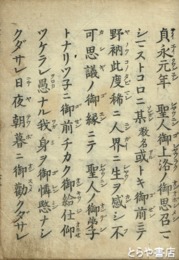 貞永元年 聖人御上洛ノ御思召ニ
シニストコロニ某数名或トキ御前ニテ
野衲此度稀ニ人界ニ生ヲ感シ不
可思議ノ御縁ニテ 聖人御弟子
トナリツ子ニ御前チカク御給仕仰
ツケラレ愚ナル我身ヲ御憐愍ナシ
クダサレ日夜朝暮ニ御勸クダサレ
とらや書店